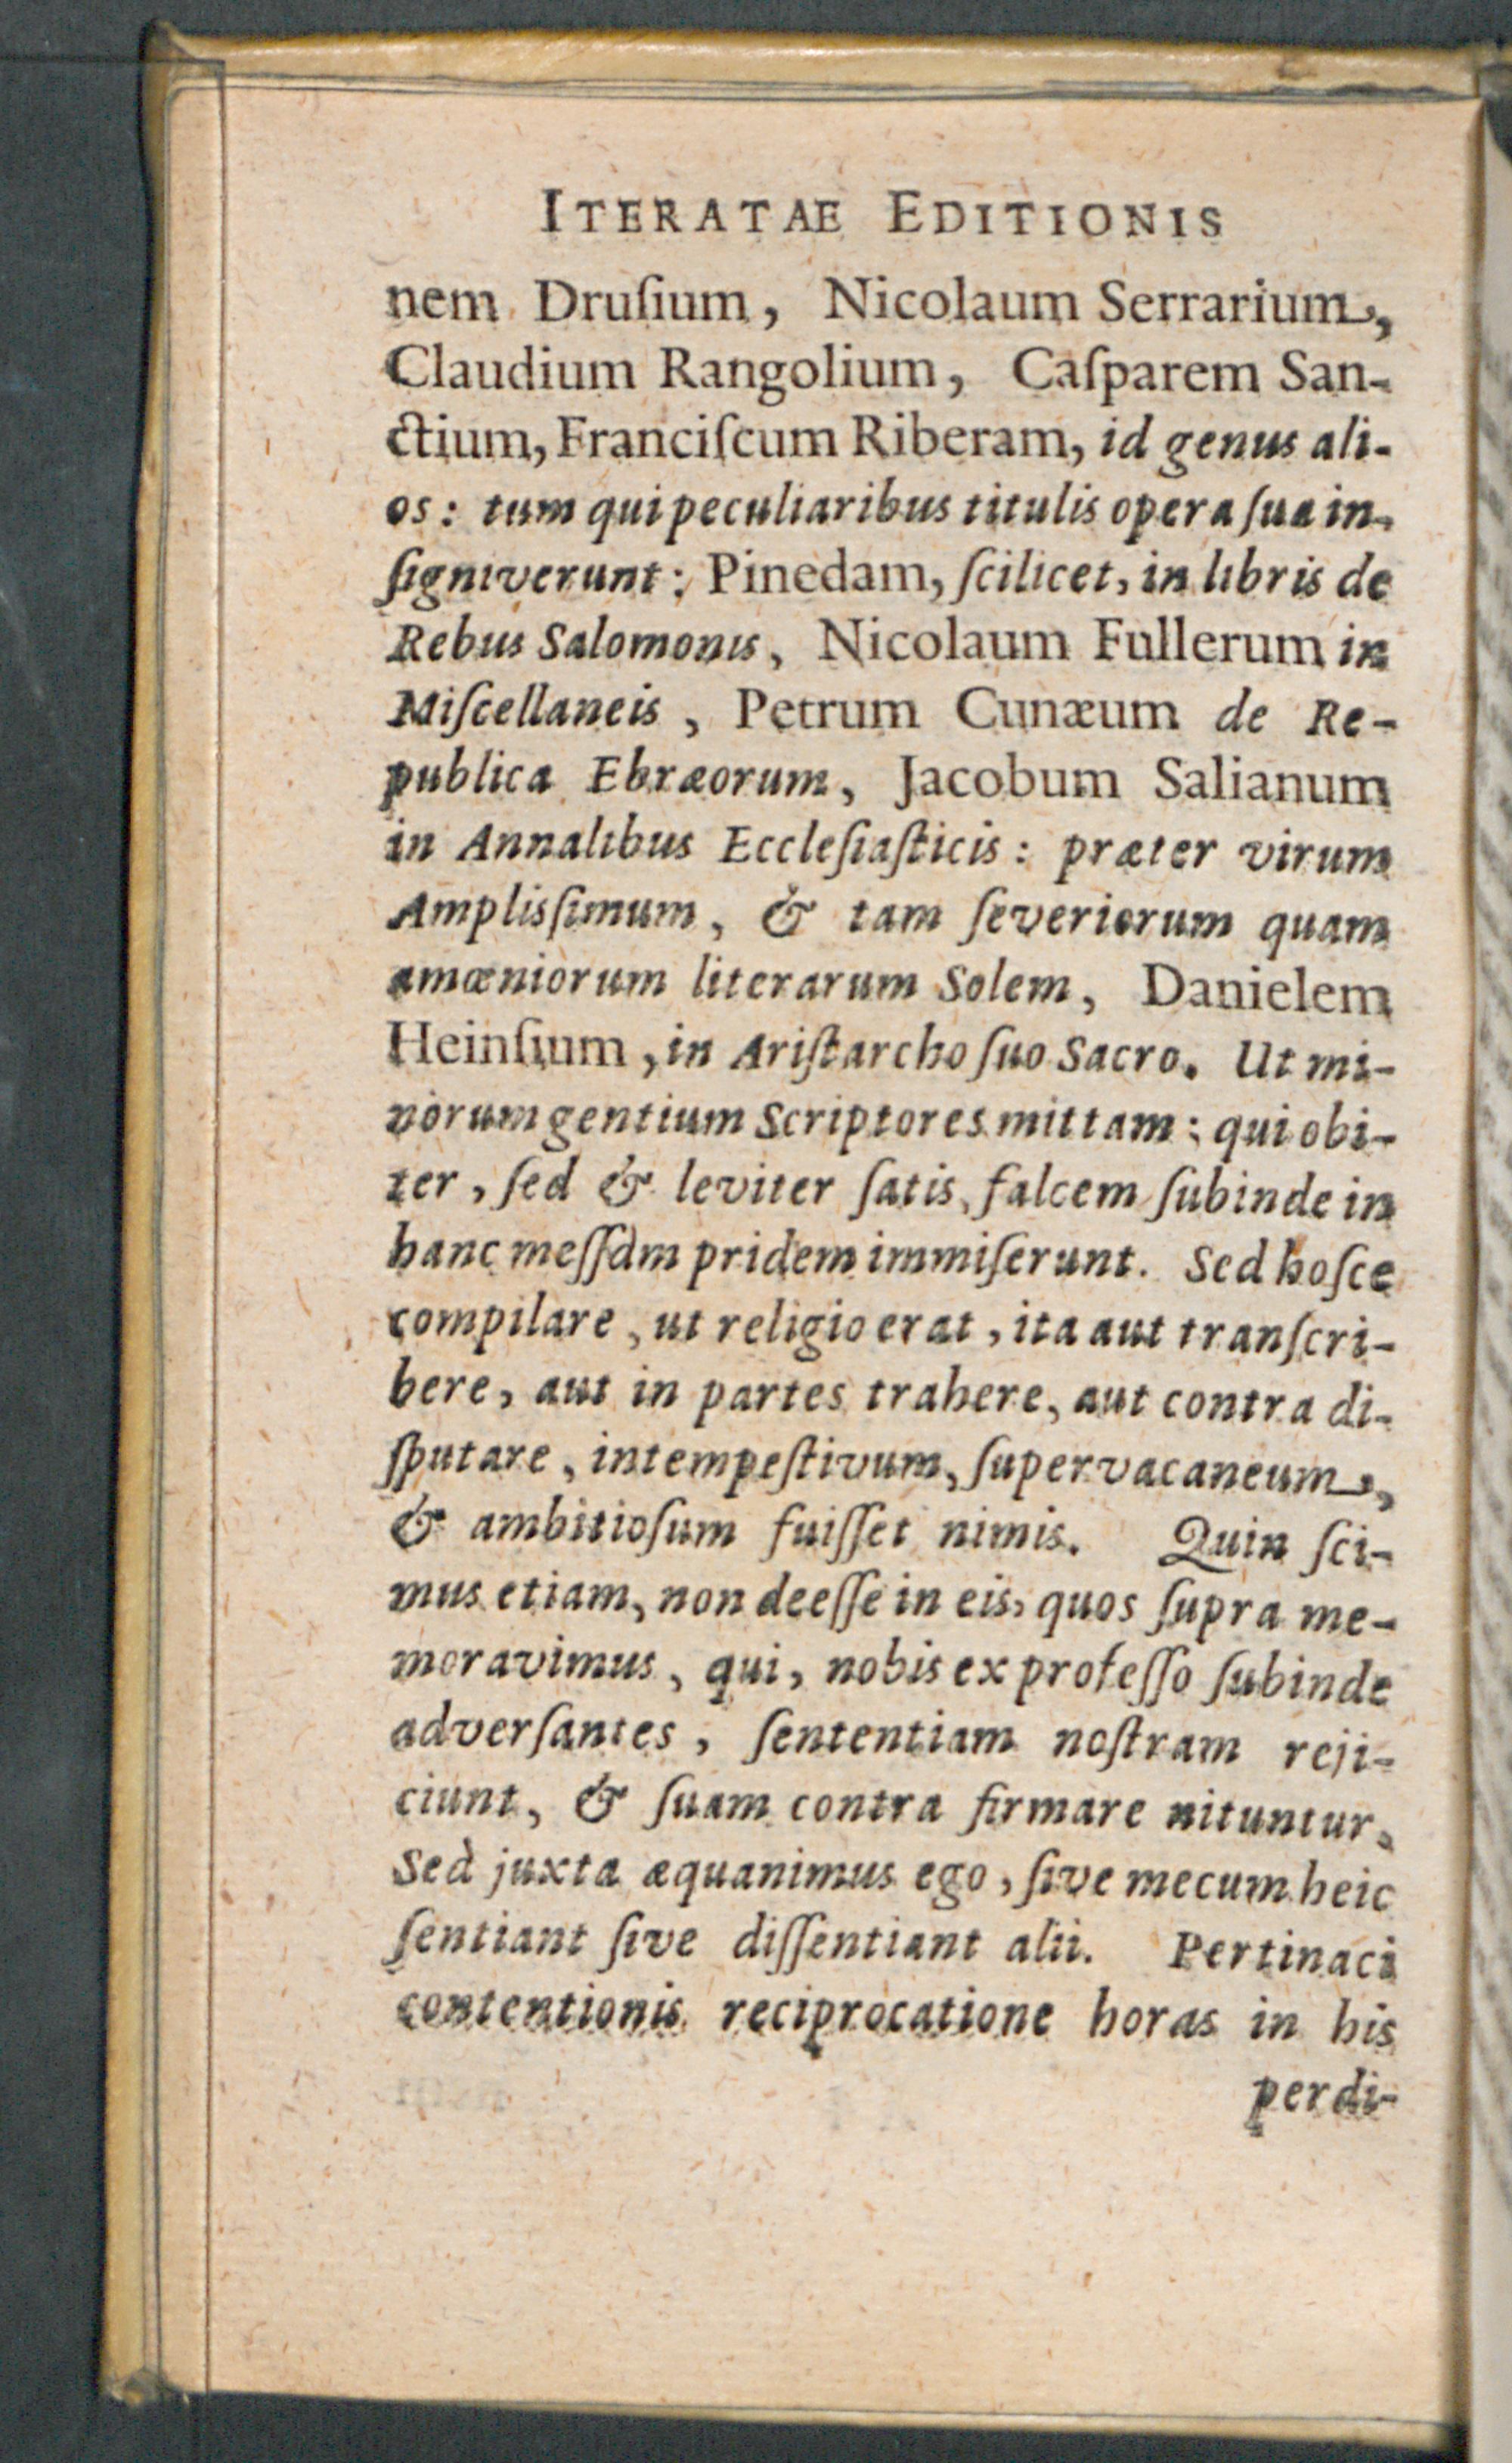 ITERATAE EDITIONIS
nem Druſium, Nicolaum Serrarium,
Claudium Rangolium, Caſparem San-
ctium, Franciſcum Riberam, id genus ali-
os: tum qui peculiaribus titulis opera ſua in-
ſigniverunt: Pinedam, ſcilicet, in libris de
Rebus Salomonis, Nicolaum Fullerum in
Miſcellaneis, Petrum Cunæum de Re-
publica Ebræorum, Jacobum Salianum
in Annalibus Eccleſiaſticis: præter virum
Amplisſimum, & tam ſeveriorum quam
amœniorum literarum Solem, Danielem
Heinſium, in Ariſtarcho ſuo Sacro. Ut mi-
norum gentium Scriptores mittam: qui obi-
ter, ſed & leviter ſatis, falcem ſubinde in
hanc meſſam pridem immiſerunt. Sed hoſce
compilare, ut religio erat, ita aut tranſcri-
bere, aut in partes trahere, aut contra di-
ſputare, intempeſtivum, ſupervacaneum,
& ambitioſum fuiſſet nimis. Quin ſci-
mus etiam, non deeſſe in eis, quos ſupra me-
moravimus, qui, nobis ex profeſſo ſubinde
adverſantes, ſententiam noſtram reji-
ciunt, & ſuam contra firmare nituntur.
Sed juxta æquanimus ego, ſive mecum heic
ſentiant ſive diſſentiant alii. Pertinaci
contentionis reciprocatione horas in his
perdi-